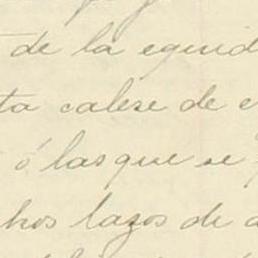 de la equid
ta calese de e
ó las que se
hos lazos de a